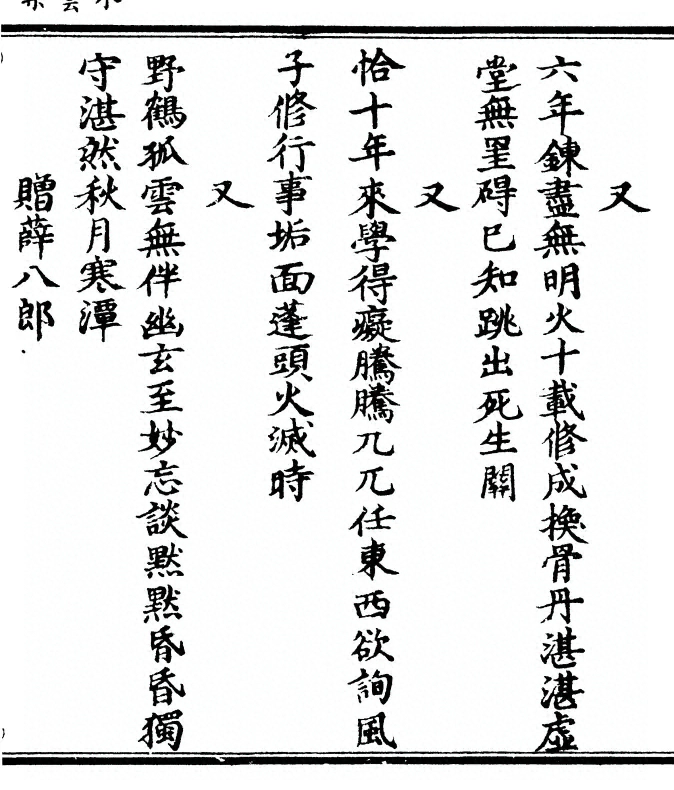 又
六年鍊盡無明火十載修成換骨丹湛湛虛
堂無罣碍已知跳出死生關
又
恰十年來學得癡騰騰兀兀任東西欲詢風
子修行事垢面蓬頭火滅時
又
野鶴孤雲無伴幽玄至妙忘談默默昏昏獨
守湛然秋月寒潭
贈薛八郎